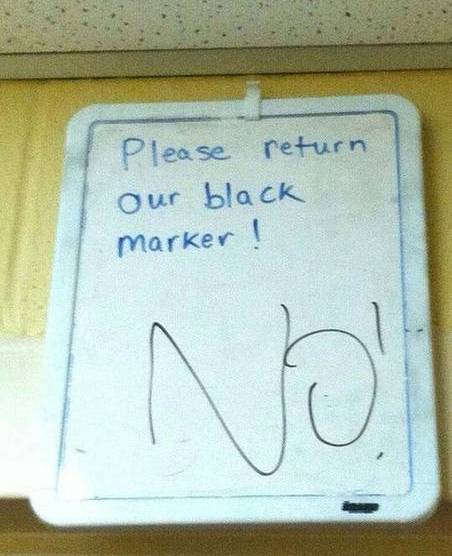 Please return
our black
marker!
NO!